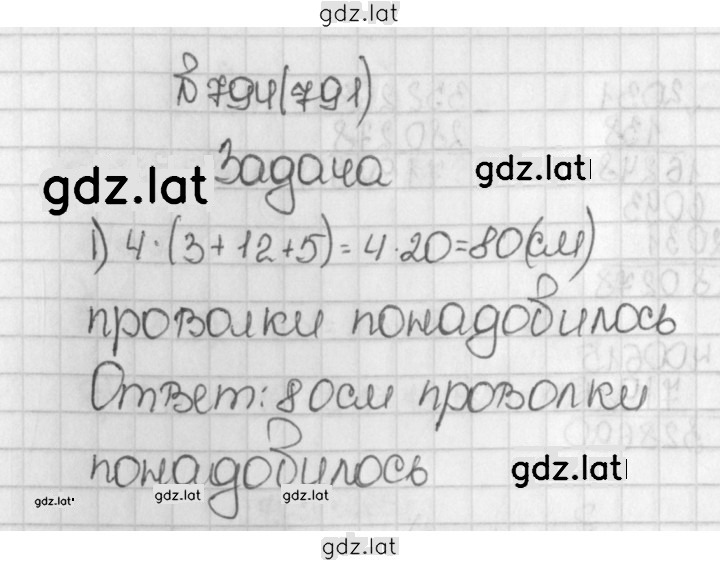 gdz.lat
№ 794(791)
gdz.lat Задача gdz.lat
1) 4·(3+12+5)=4·20=80(см)
проволки понадобилось
Ответ: 80см проволки
понадобилось gdz.lat
gdz.lat gdz.lat gdz.lat
gdz.lat